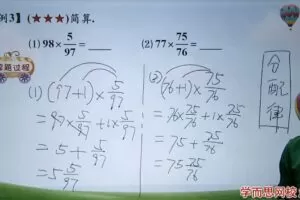 例3】(★★★)简算.
(1) 98×5/97=
(2) 77×75/76=
解题过程
(1) (97+1)×5/97
=97×5/97+1×5/97
=5+5/97
=5 5/97
(2) (76+1)×75/76
=76×75/76+1×75/76
=75+75/76
=75 75/76
分配律
学而思网校